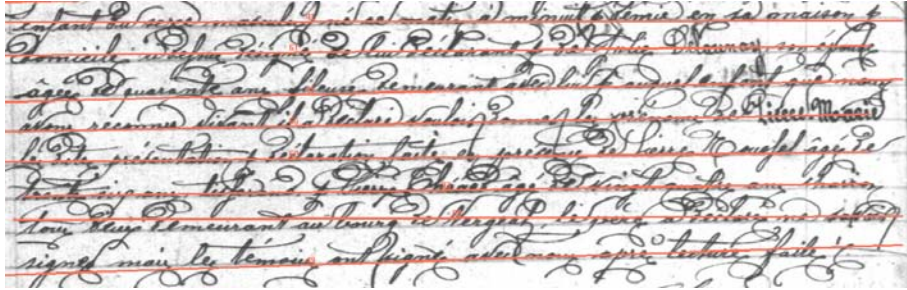 enfant du sexe masculin né ce matin à minuit & demie en sa maison &
domicile de lui déclarant & de Delaunay son épouse
âgée de quarante ans fileuse demeurant avec lui & auquel enfant que nous
avons reconnu vivant il a déclaré vouloir donner les prénoms de Pierre Marie
les dites présentation & déclaration faites en présence de Pierre âgé de
trente six ans & Pierre âgé de vingt quatre ans
tous deux demeurant au bourg de Vergeal le père a déclaré ne savoir
signer mais les témoins ont signé avec nous après lecture faite